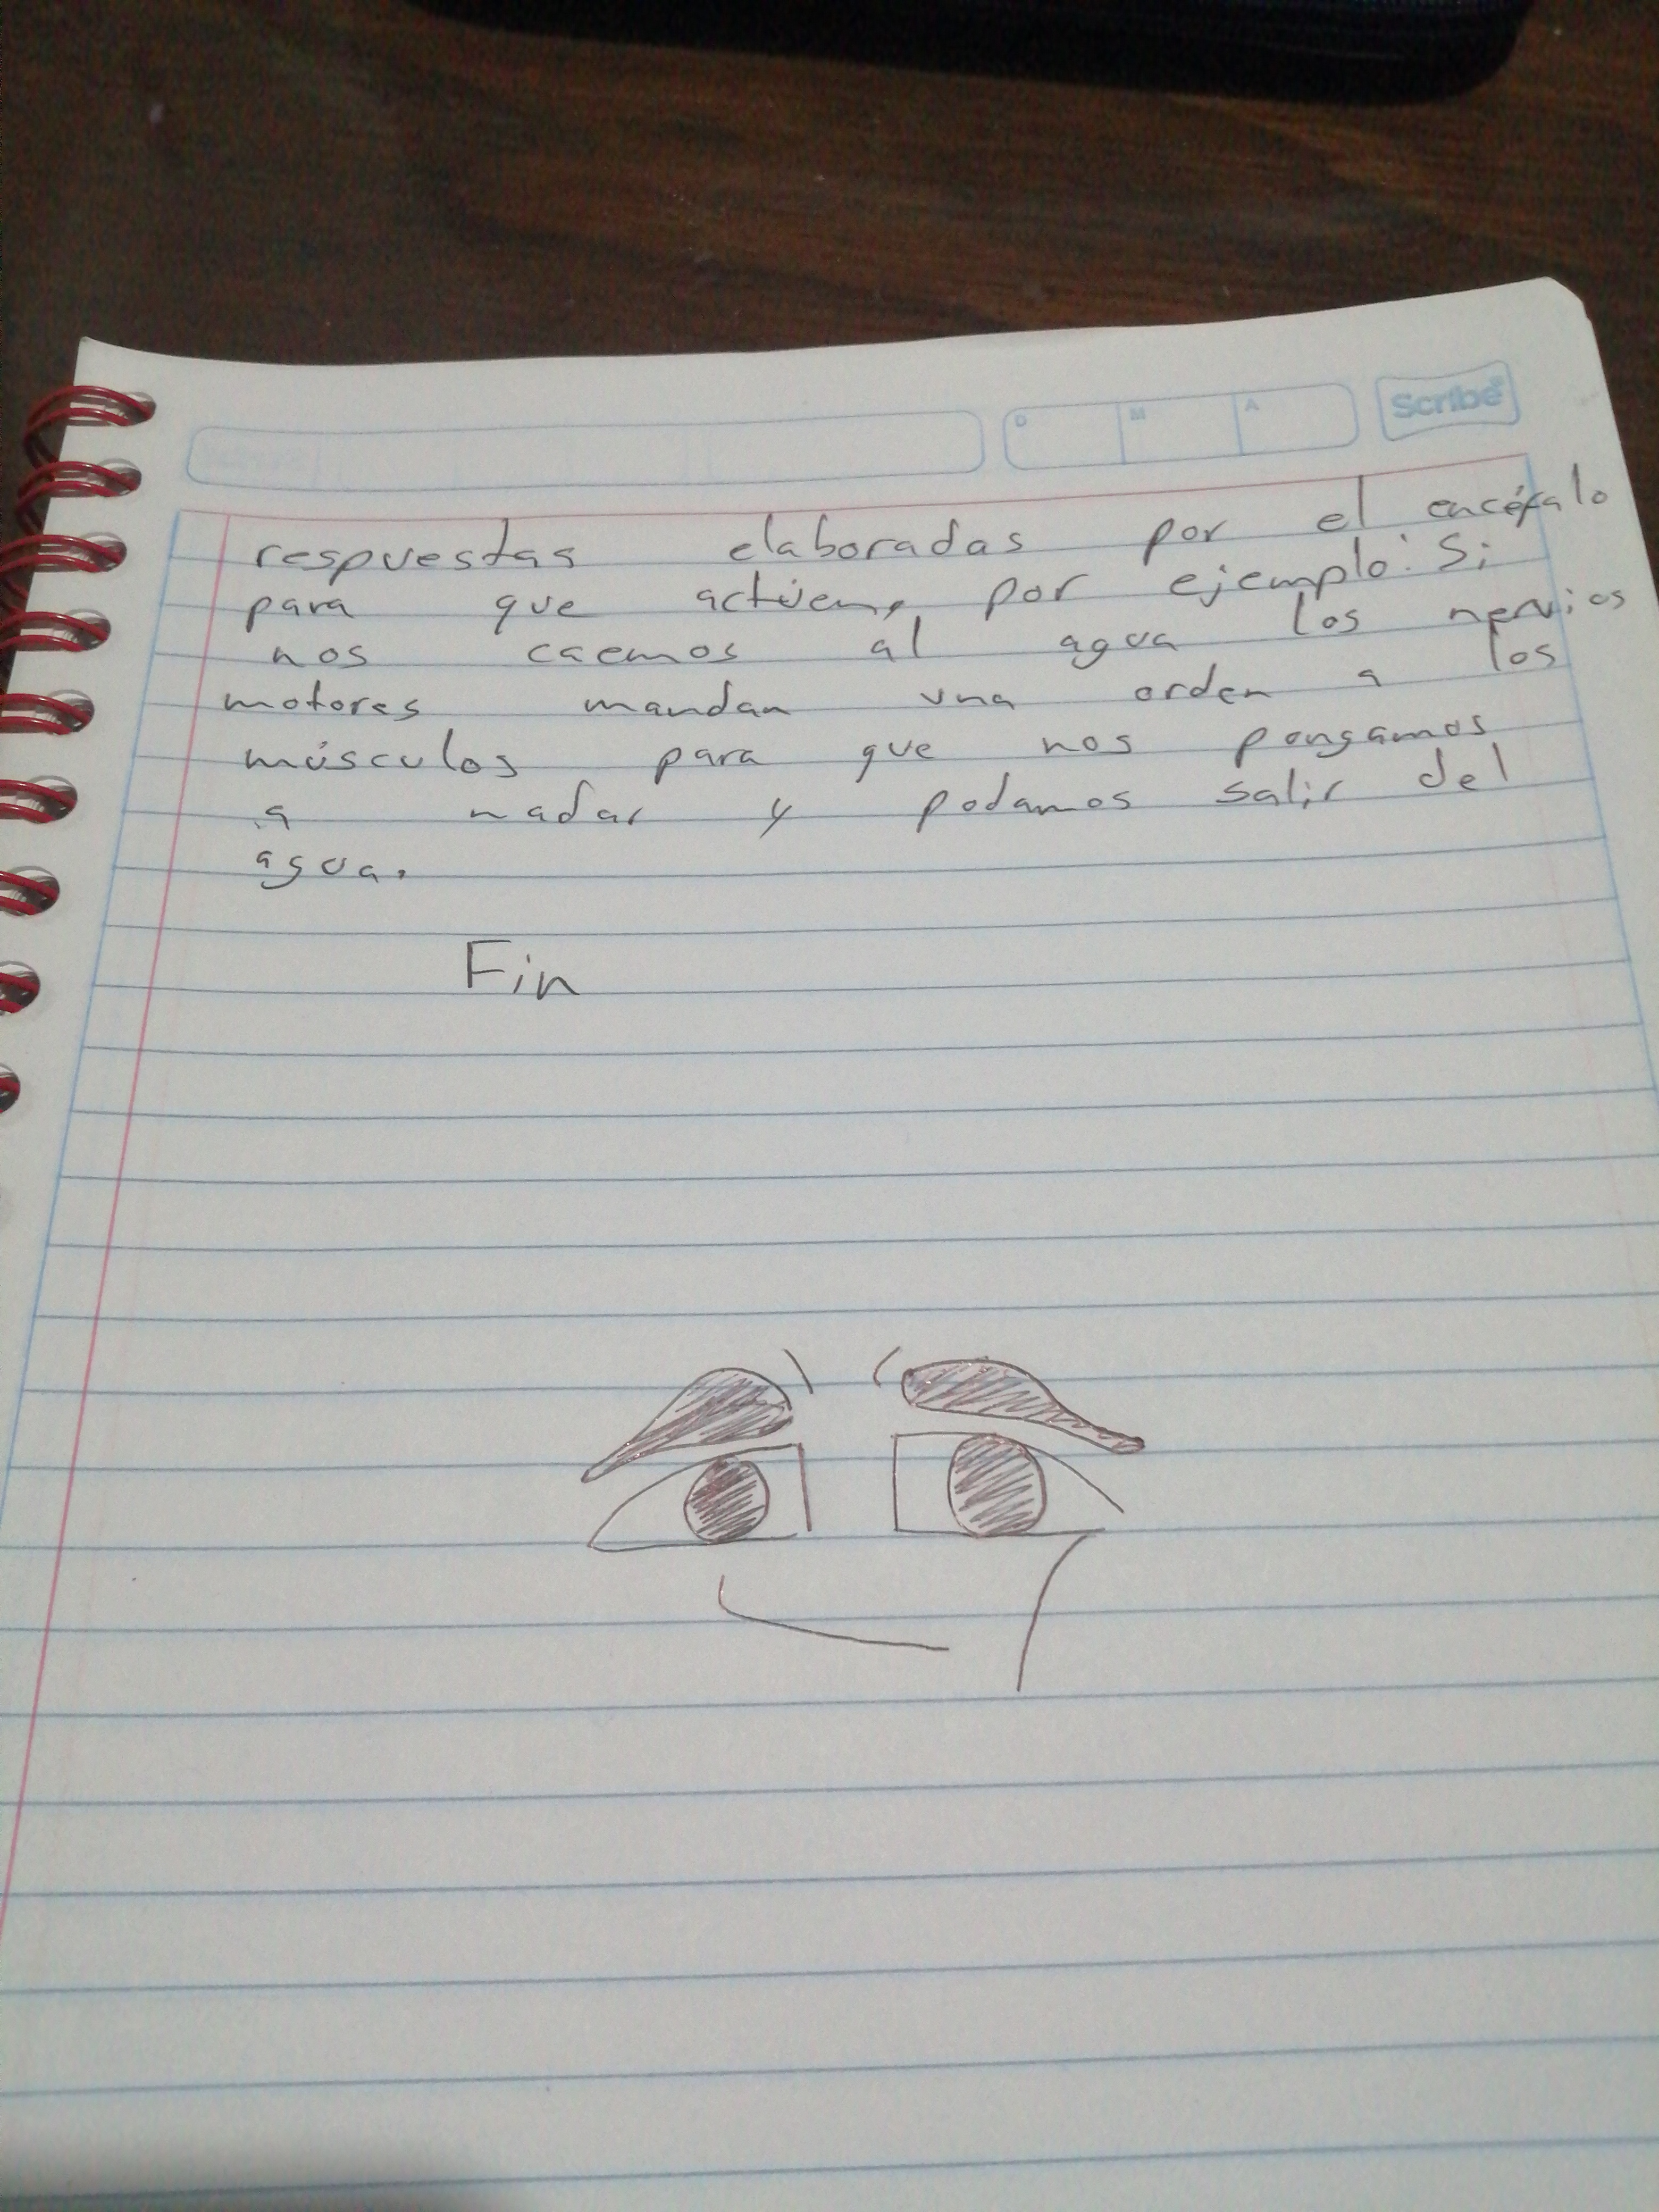 D M A Scribe
respuestas elaboradas por el encéfalo
para que actúen, por ejemplo: Si
nos caemos al agua los nervios
motores mandan una orden a los
músculos para que nos pongamos
a nadar y podamos salir del
agua.
Fin